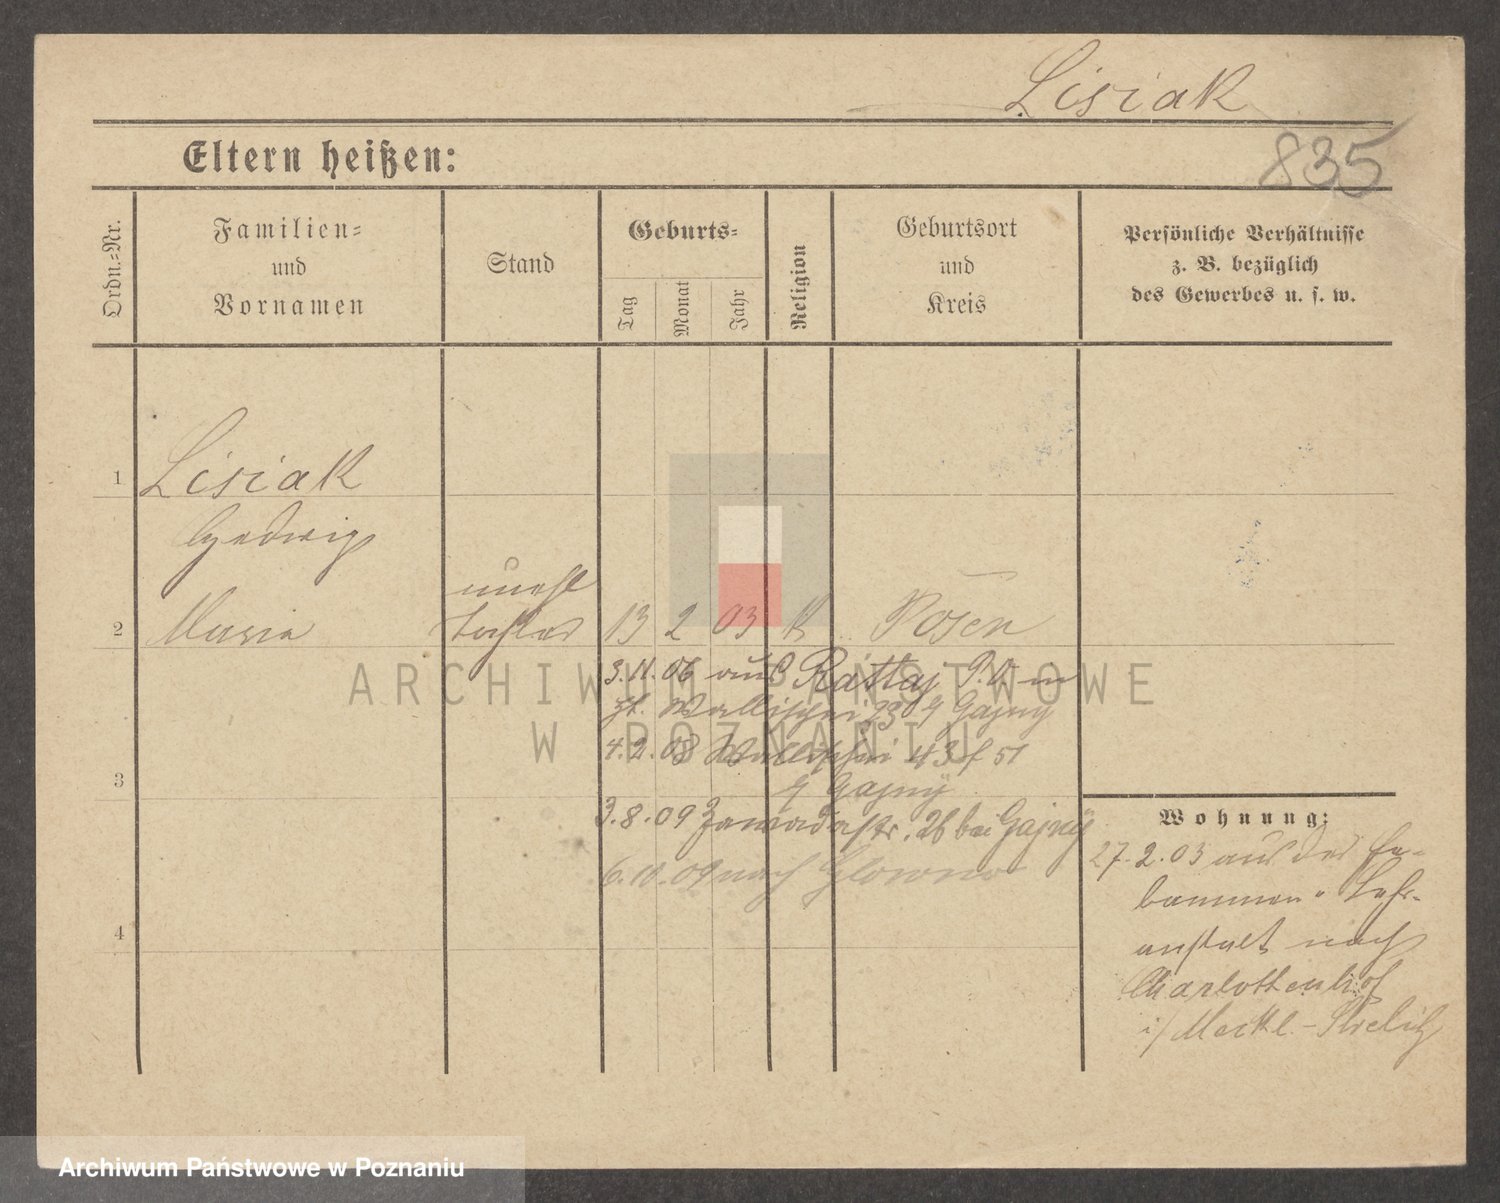 Lisiak
835
Eltern heißen:
Ordn.-Nr.
Familien-
und
Vornamen
Stand
Geburts-
Tag
Monat
Jahr
Religion
Geburtsort
und
Kreis
Persönliche Verhältnisse
z. B. bezüglich
des Gewerbes u. s. w.
1 Lisiak
Hedwig
unehl
2 Maria Tochter 13 2 03 k Posen
3.11.06 aus Rattaj P.O. in
Wallischei 23 Gajny
4.2.08 Wallischei 43 f 51
3 Gajny
3.8.09 Zawadestr. 26 bei Gajny
6.10.09 nach Glowno
4
Wohnung:
27.2.03 aus der He-
bammen-Lehr-
anstalt nach
Charlottenhof
i/ Meckl.-Strelitz
ARCHIWUM PAŃSTWOWE
W POZNANIU
Archiwum Państwowe w Poznaniu